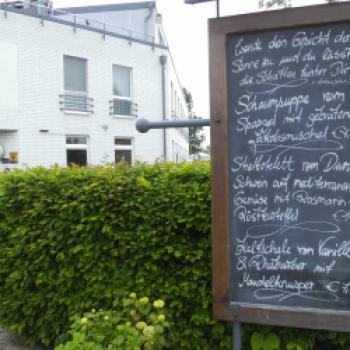 Wende dein Gesicht der
Sonne zu und du lässt
die Schatten hinter Dir
Schaumsuppe vom
Spargel mit gebratener
Jakobsmuschel €
Stielkotelett vom Duroc
Schwein auf mediterranem
Gemüse mit Rosmarin
Röstkartoffel €
Kaltschale von Vanille
& Rhabarber mit
Mandelknusper €